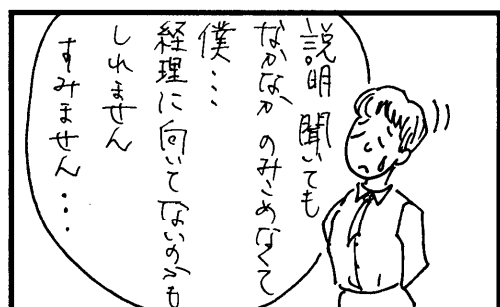 説明 聞いても
なかなか のみこめなくて
僕...
経理に向いてないのかも
しれません
すみません...